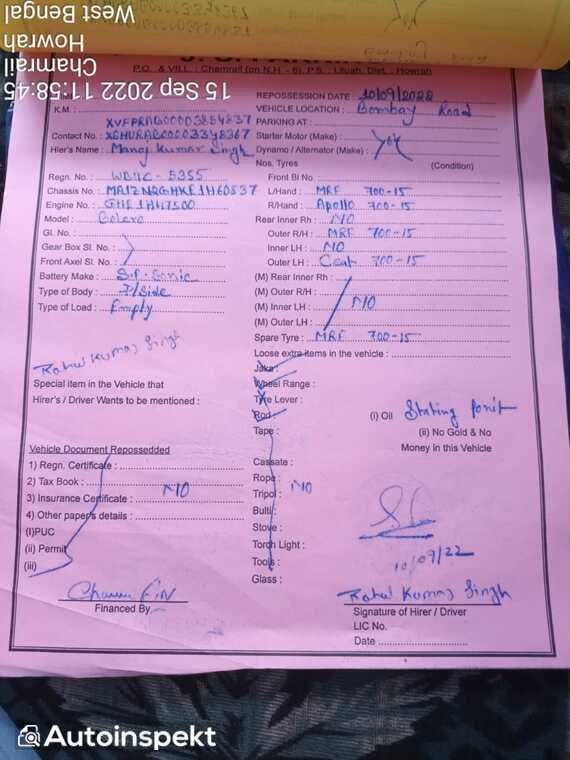 West Bengal
Howrah
Chamrail
15 Sep 2022 11:58:45
P.O. & VILL : Chamrail (on N.H. - 6), P.S. : Liluah, Dist. : Howrah
REPOSSESSION DATE : 10/09/2022
K.M. :
VEHICLE LOCATION : Bombay Road
PARKING AT :
Contact No. :
Starter Motor (Make) :
Hier's Name : Manoj Kumar Singh
Dynamo / Alternator (Make) :
Nos. Tyres (Condition)
Regn. No. : WB11C - 5355
Front Bl No
Chassis No. :
L/Hand : MRF 700-15
Engine No. : GHF1H47500
R/Hand : Apollo 700-15
Model : Bolero
Rear Inner Rh : NO
Gl. No. :
Outer R/H : MRF 700-15
Gear Box Sl. No. :
Inner LH : NO
Front Axel Sl. No. :
Outer LH : Ceat 700-15
Battery Make : S.F. Sonic
(M) Rear Inner Rh :
Type of Body : P/Side
(M) Outer R/H :
Type of Load : Empty
(M) Inner LH : NO
(M) Outer LH :
Spare Tyre : MRF 700-15
Rahul Kumar Singh
Loose extra items in the vehicle :
Jaka :
Special item in the Vehicle that
Wheel Range :
Hirer's / Driver Wants to be mentioned :
Tyre Lever :
Rod :
(i) Oil Stating Ponit
Tape :
(ii) No Gold & No
Money in this Vehicle
Vehicle Document Repossedded
1) Regn. Certificate :
2) Tax Book :
3) Insurance Certificate : NO
4) Other papers details :
(I)PUC
(ii) Permit
(iii)
Cassate :
Rope :
Tripol : NO
Bulti :
Stove :
Torch Light :
Tools :
Glass :
10/09/22
Financed By
Rahul Kumar Singh
Signature of Hirer / Driver
LIC No.
Date
Autoinspekt